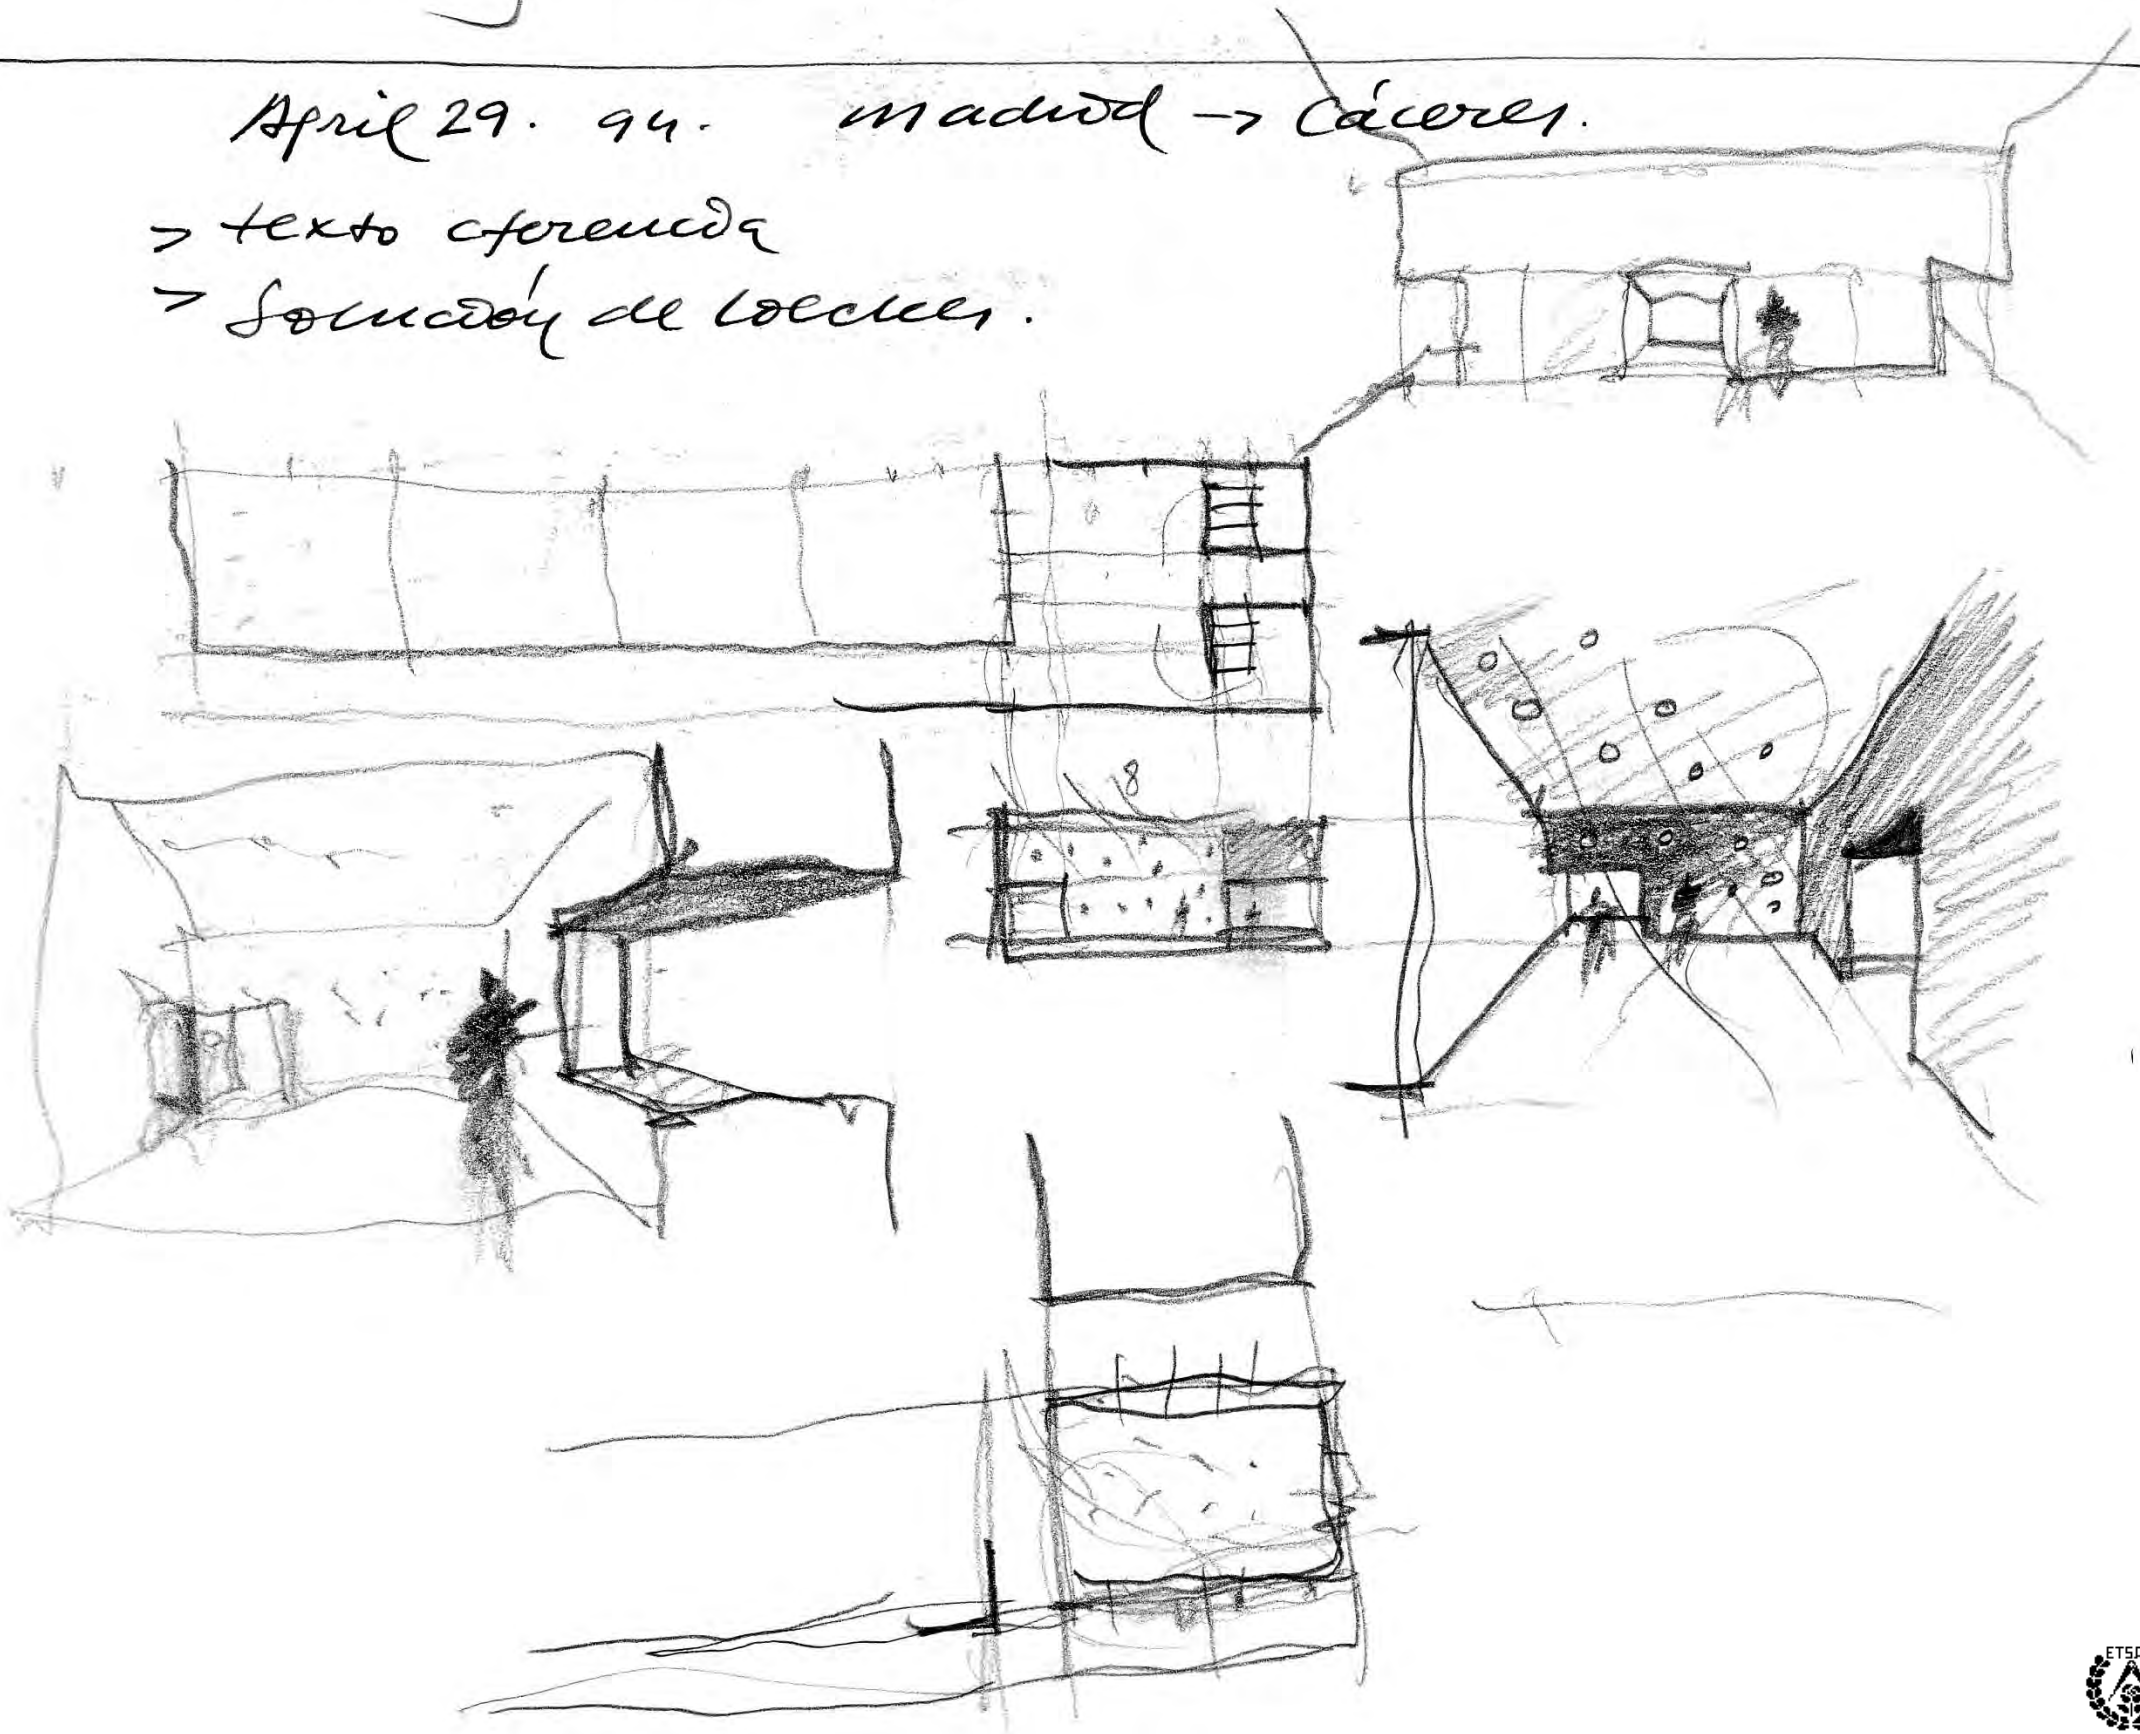 April 29. 94. madrid → Cáceres.
> texto cferencia
> Solución de
8
ETSA